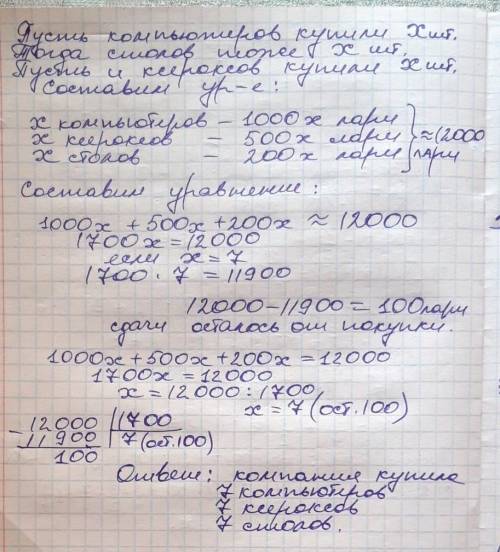 Пусть компьютеров купили x шт.
Тогда столов тоже x шт.
Пусть и ксероксов купили x шт.
Составим ур-е:
x компьютеров – 1000x лари
x ксероксов – 500x лари } ≈ 12000 лари
x столов – 200x лари
Составим уравнение:
1000x + 500x + 200x ≈ 12000
1700x = 12000
если x = 7
1700 · 7 = 11900
12000 – 11900 = 100 лари
сдачи осталось от покупки.
1000x + 500x + 200x = 12000
1700x = 12000
x = 12000 : 1700
x = 7 (ост. 100)
– 12000 | 1700
11900 | 7 (ост. 100)
100
Ответ: компания купила
7 компьютеров
7 ксероксов
7 столов.